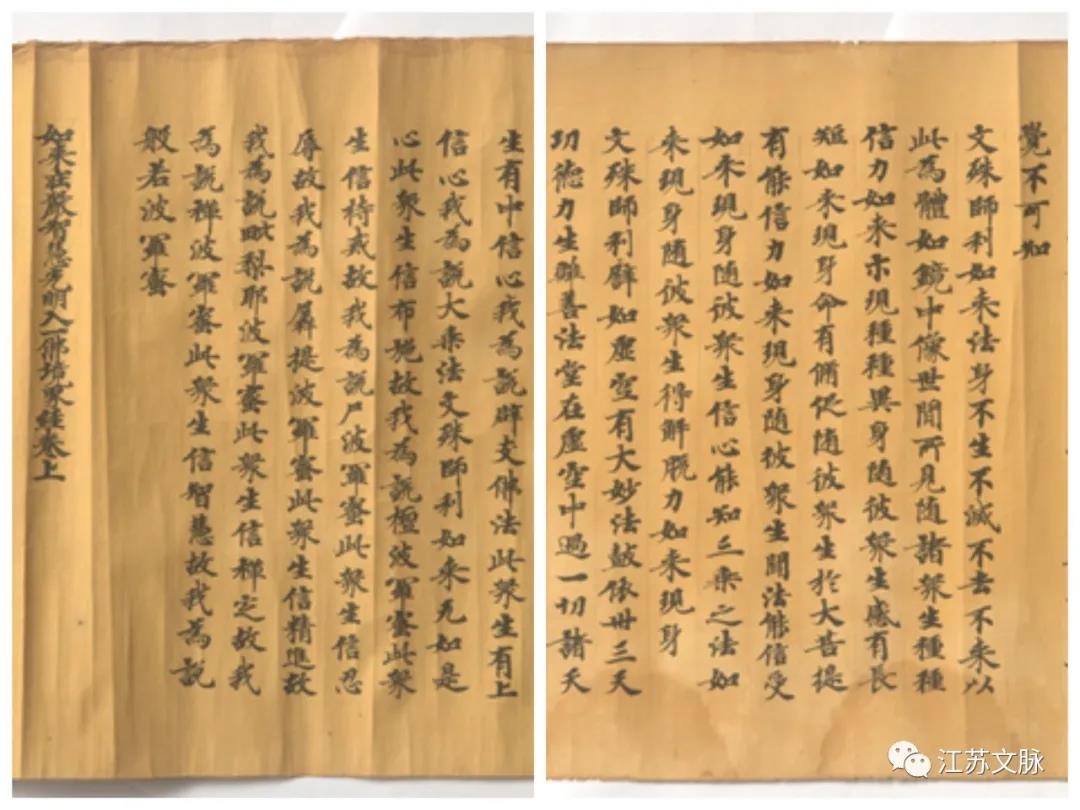 覺不可知
文殊師利如来法身不生不滅不去不来以
此為體如鏡中像世間所見随諸衆生種種
信力如来示現種種異身随彼衆生感有長
短如来現身命有脩促随彼衆生於大菩提
有能信力如来現身随彼衆生聞法能信受
如来現身随彼衆生信心能知三乘之法如
来現身随彼衆生得解脱力如来現身
文殊師利辟如虛空有大妙法鼓依卅三天
功德力生離善法堂在虛空中過一切諸天
生有中信心我為説辟支佛法此衆生有上
信心我為説大乘法文殊師利如来无如是
心此衆生信布施故我為説檀波羅蜜此衆
生信持戒故我為説尸波羅蜜此衆生信忍
辱故我為説羼提波羅蜜此衆生信精進故
我為説毗梨耶波羅蜜此衆生信禪定故我
為説禪波羅蜜此衆生信智慧故我為説
般若波羅蜜
如来莊嚴智慧光明入佛境界經卷上
江苏文脉